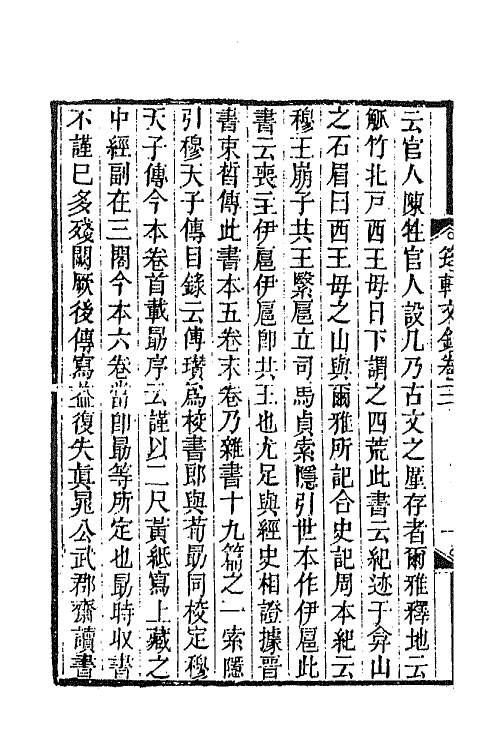 云官人陳牲官人設几乃古文之厪存者爾雅釋地云
觚竹北戸西王母日下謂之四荒此書云紀迹于弇山
之石眉曰西王母之山與爾雅所記合史記周本紀云
穆王崩子共王繄扈立司馬貞索隱引世本作伊扈此
書云喪主伊扈伊扈卽共王也尤足與經史相證據晉
書束晳傳此書本五卷末卷乃雜書十九篇之一索隱
引穆天子傳目錄云傅瓚爲校書郎與荀勗同校定穆
天子傳今本卷首載勗序云謹以二尺黃紙寫上藏之
中經副在三閣今本六卷當卽勗等所定也勗時收書
不謹已多殘闕厥後傳寫益復失眞晁公武郡齋讀書
筠軒文鈔卷三